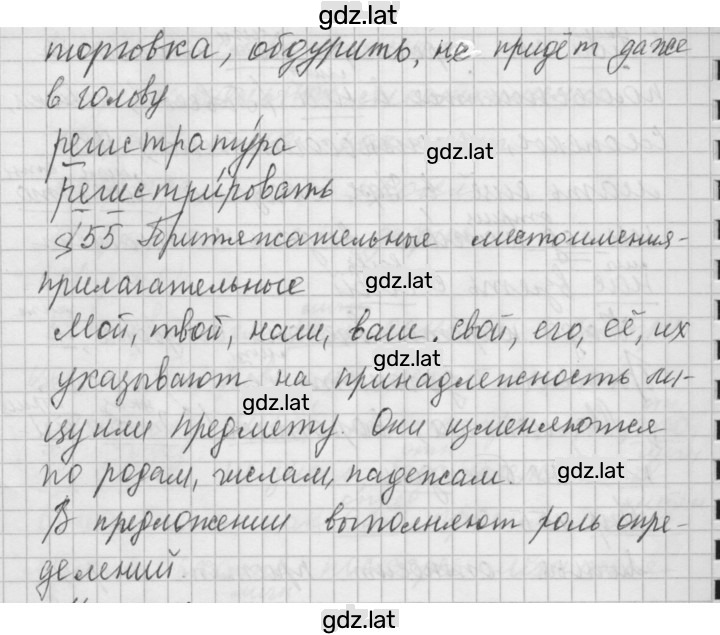 gdz.lat
торговка, обдурить, не придёт даже
в голову
регистрату́ра
gdz.lat
регистри́ровать
§55 Притяжательные местоимения-
прилагательные
gdz.lat
Мой, твой, наш, ваш. свой, его, её, их
gdz.lat
указывают на принадлежность ли-
gdz.lat
цу или предмету. Они изменяются
по родам, числам, падежам.
gdz.lat
В предложении выполняют роль опре-
делений.
gdz.lat